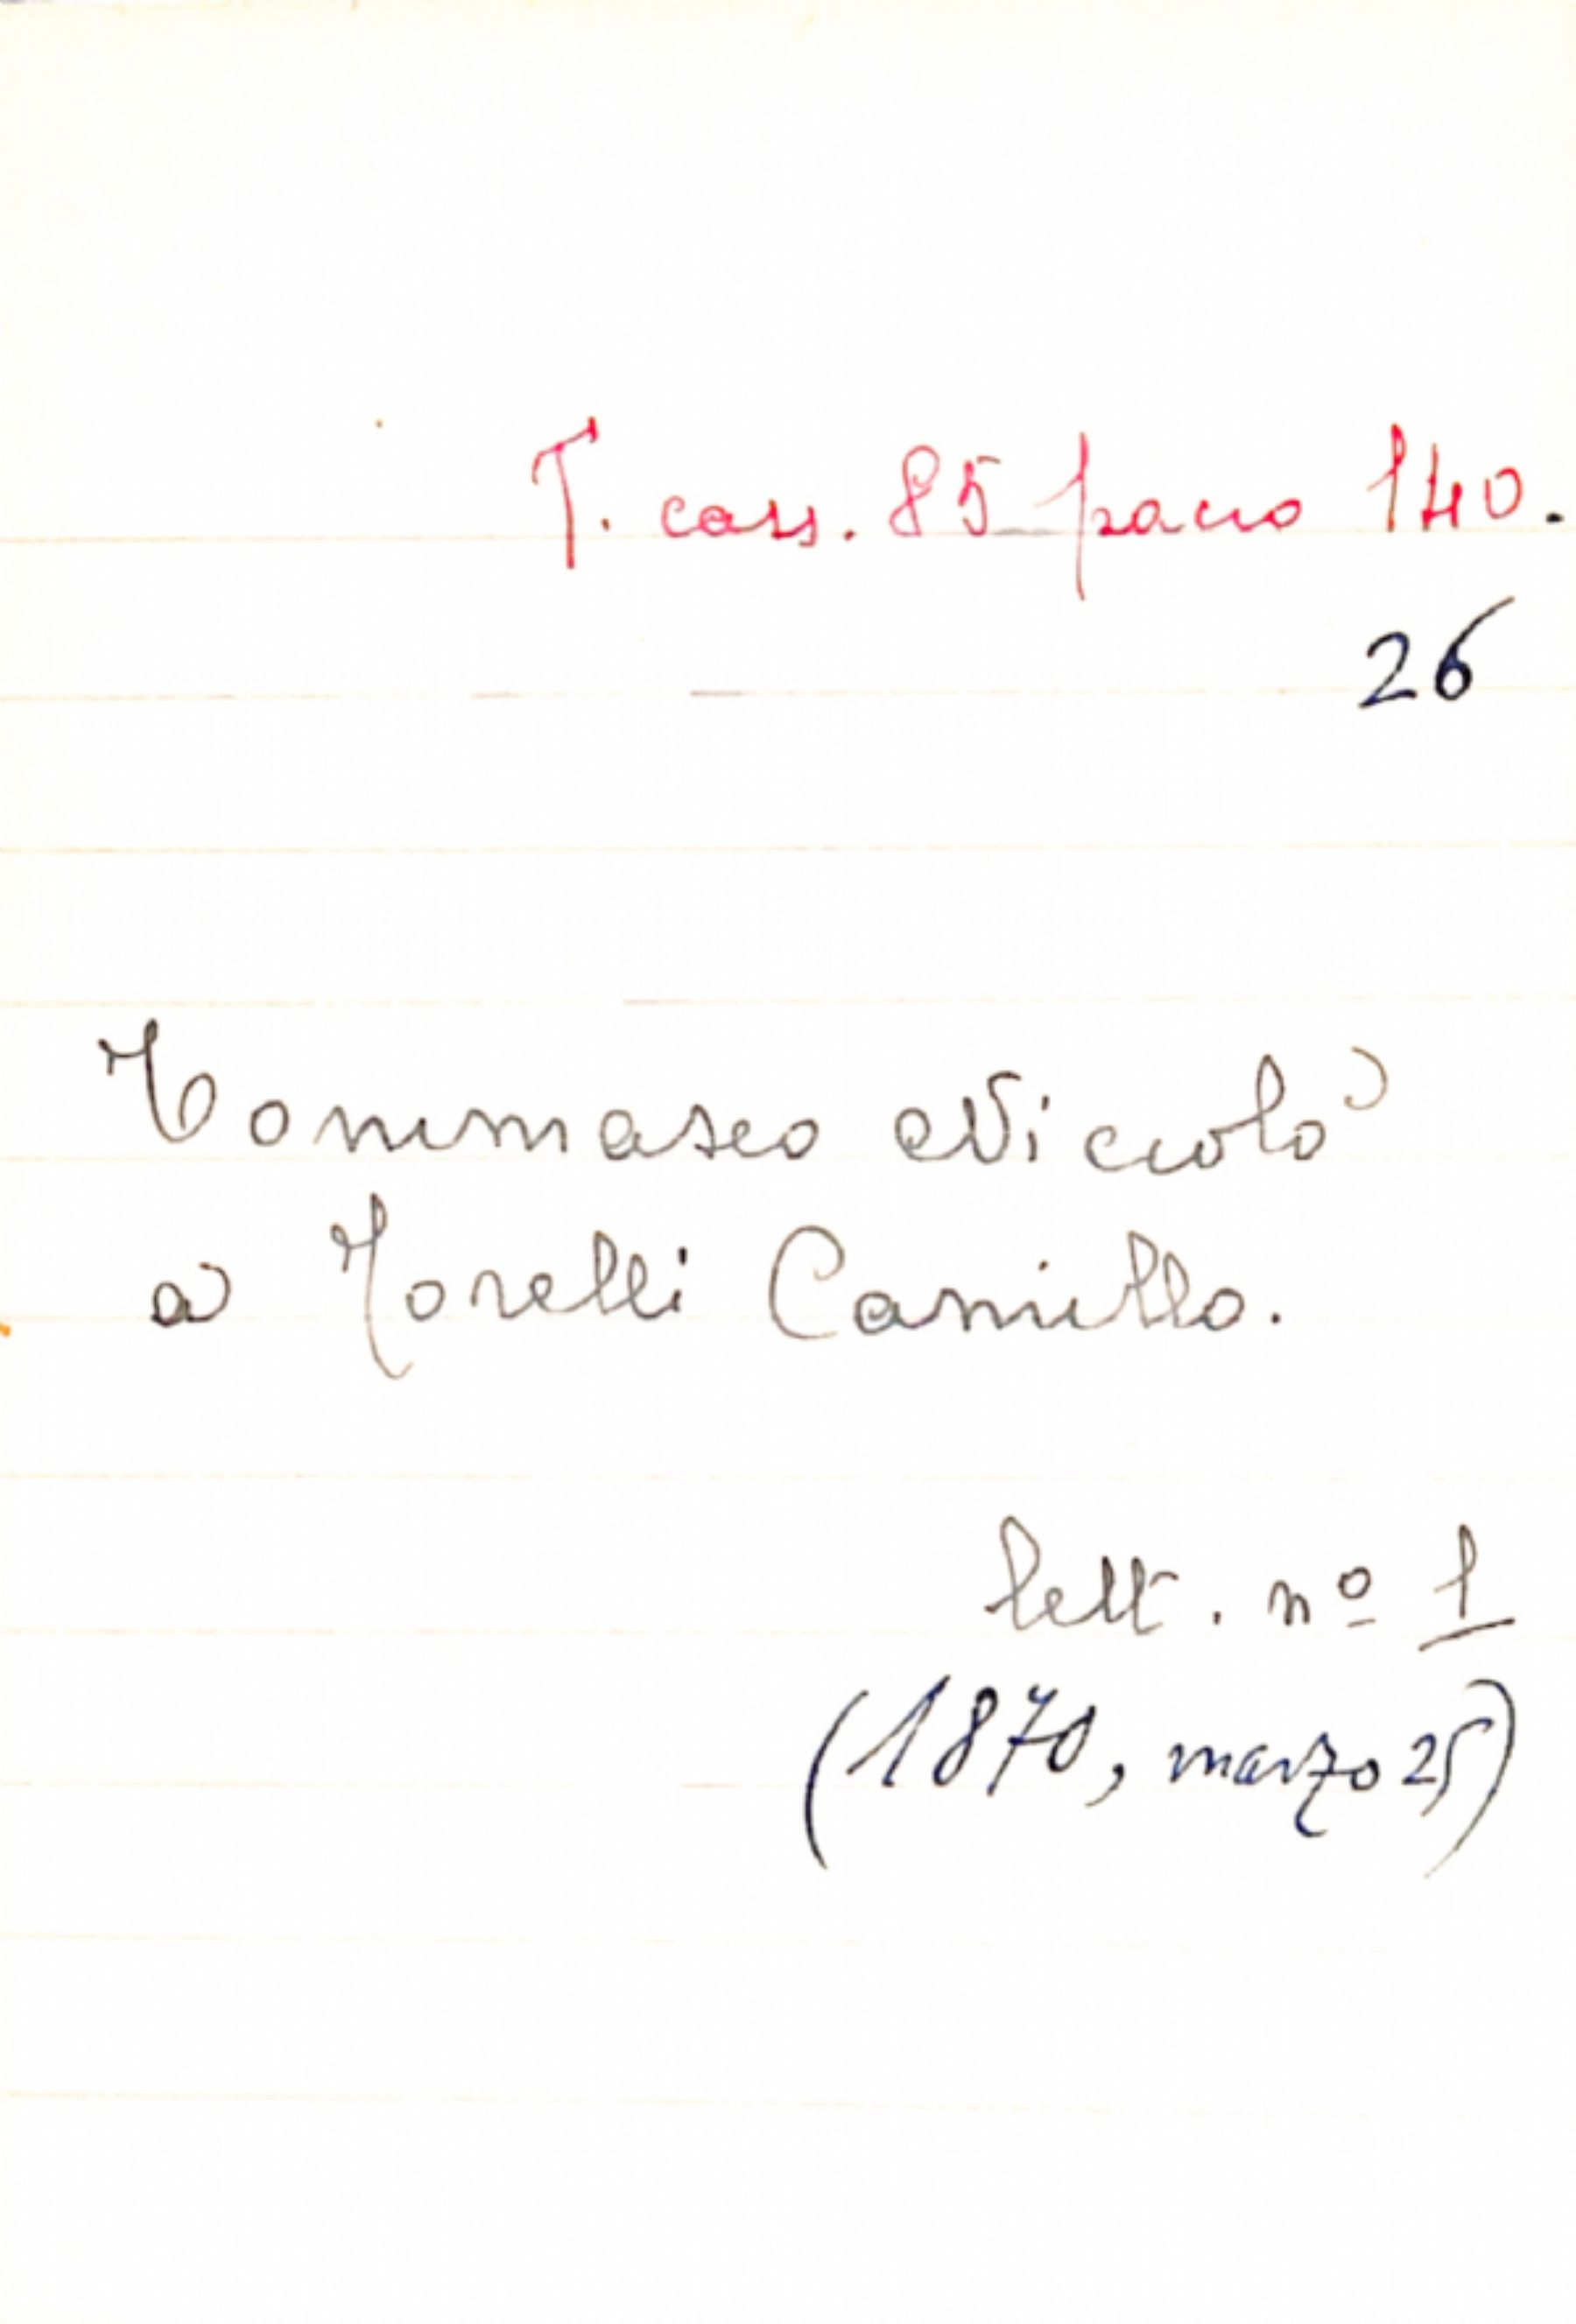 T. cass. 85 pacco 140.
26
Tommaseo Niccolò
a Torelli Camillo.
lett. nº 1
(1870, marzo 25)